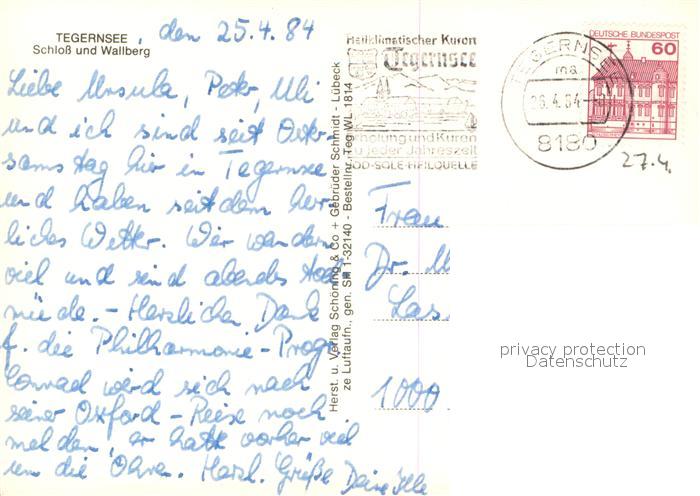 TEGERNSEE, den 25.4.84
Schloß und Wallberg
Liebe Ursula, Peter, Uli
und ich sind seit Oster-
samstag hier in Tegernsee
und haben seitdem herr-
liches Wetter. Wir wandern
viel und sind abends
müde. - Herzlichen Dank
f. die Philharmonie-Progr.
Conrad wird sich nach
seiner Oxford-Reise noch
melden, er hatte vorher viel
um die Ohren. Herzl. Grüße Deine
Herst. u. Verlag Schöning & Co + Gebrüder Schmidt - Lübeck
ze Luftaufn., gen. SH 1-32140 - Bestellnr. Teg WL 1814
Heilklimatischer Kurort
Tegernsee
Erholung und Kuren
zu jeder Jahreszeit
JOD-SOLE-HEILQUELLE
TEGERNSEE
ma
26.4.84
8180
DEUTSCHE BUNDESPOST
60
27.4.
Frau
Dr.
1000
privacy protection
Datenschutz